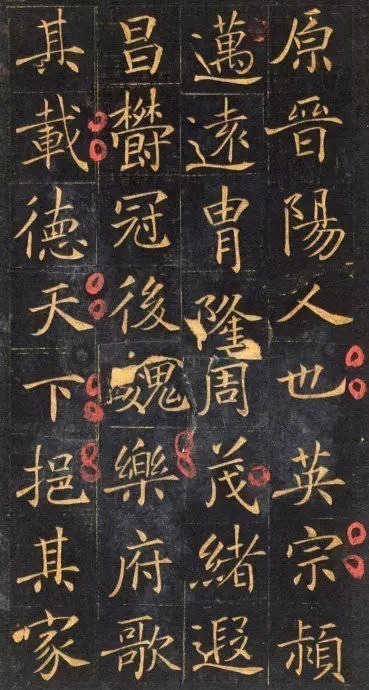 原晉陽人也英宗穎
邁遠冑隆周茂緒遐
昌欝冠後魏樂府歌
其載德天下挹其家